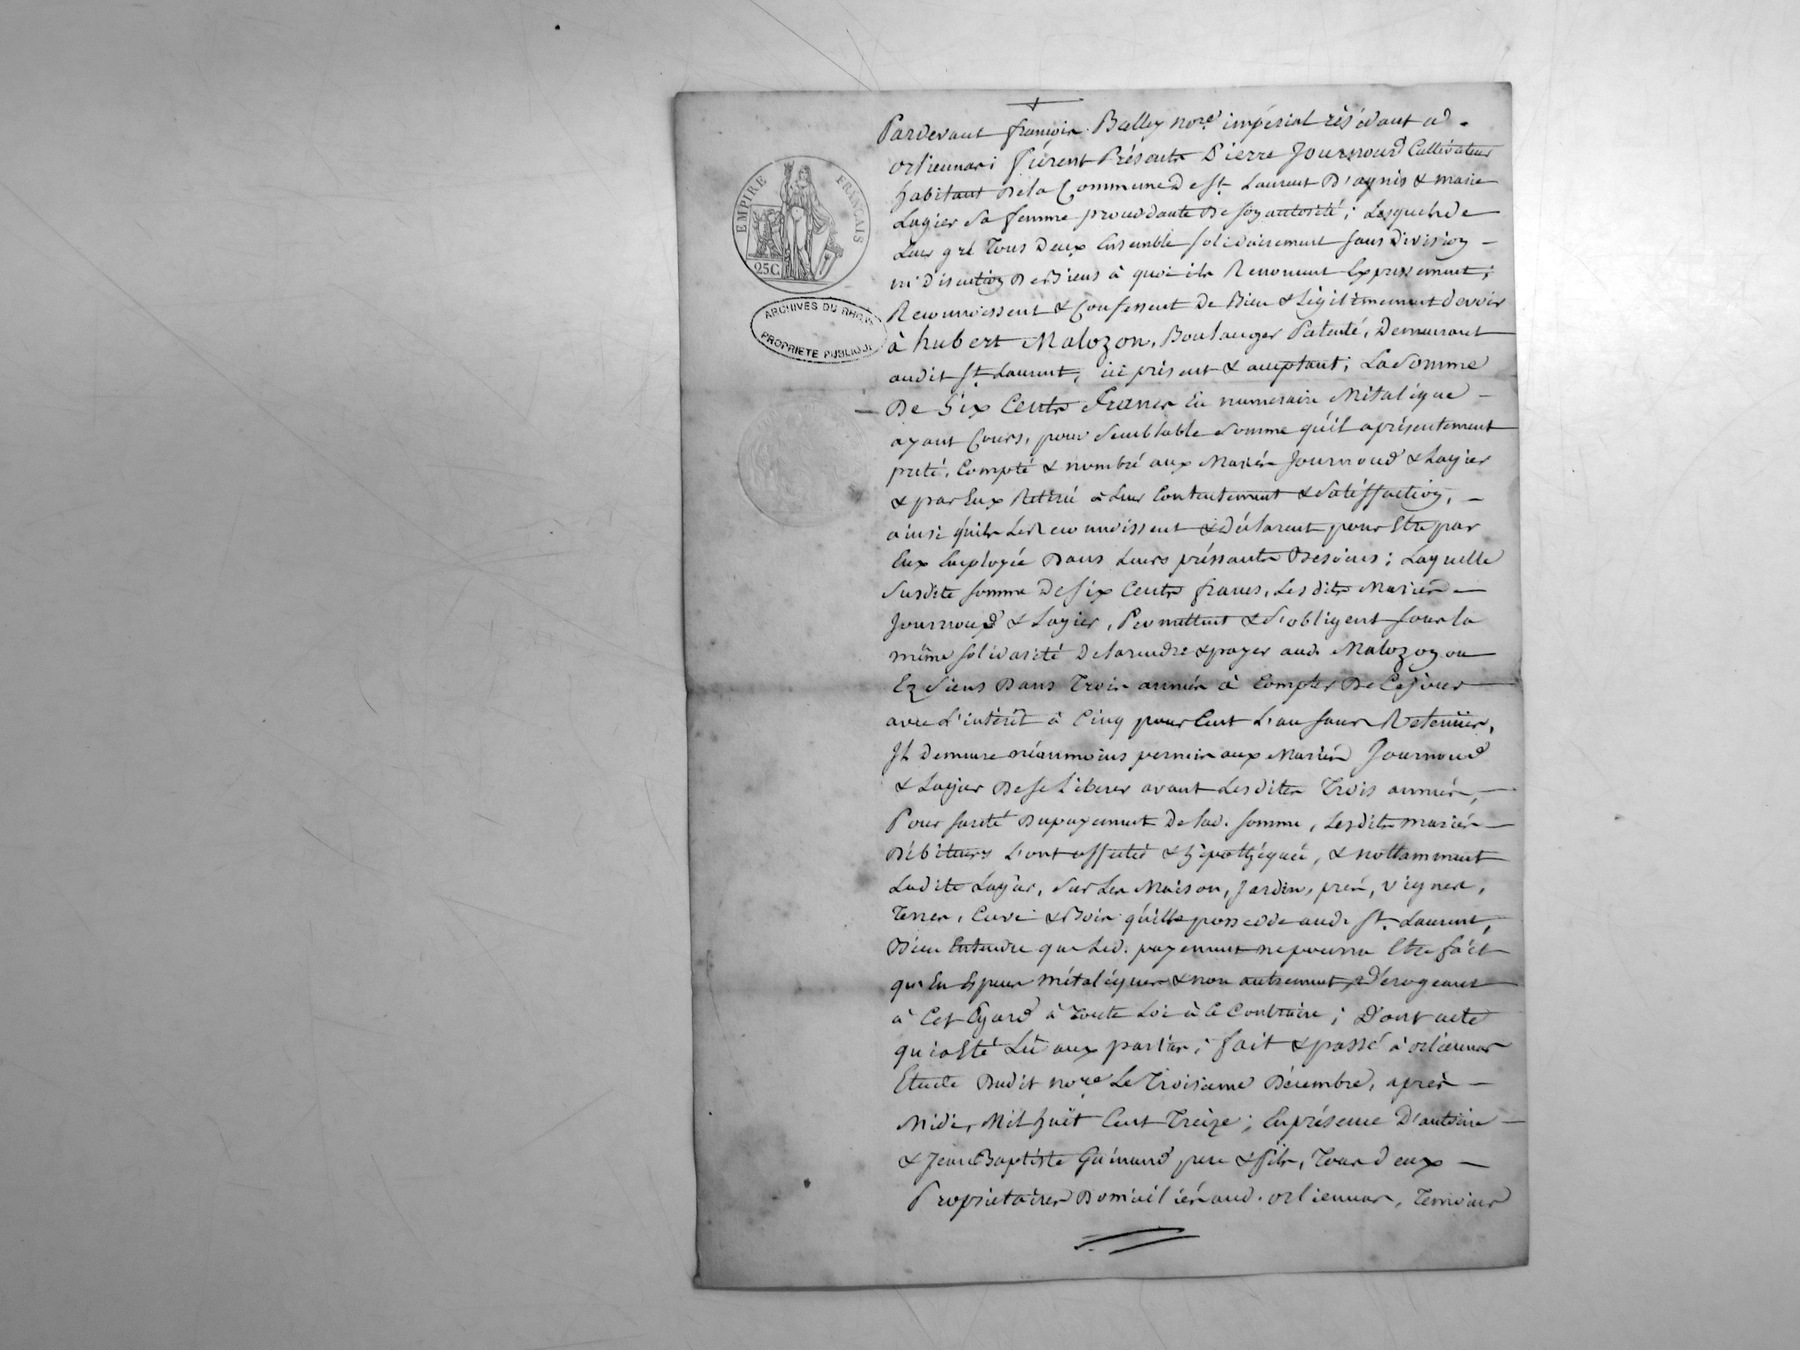 EMPIRE FRANÇAIS
25C.
ARCHIVES DU RHONE
PROPRIETE PUBLIQUE
Pardevant françois Balley nore. impérial résidant à
orliennas; furent Présents Pierre Journoud Cultivateur
habitant De la Commune De St. Laurent D'agnis & marie
Lagier Sa femme procédante De Son autorité; Lesquels De
Leur gré Tous Deux Ensemble solidairement sans Division
ni discution De Biens à quoi ils Renoncent Expressement;
Reconnoissent & Confessent De Bien & Légitimement devoir
à hubert Malozon, Boulanger Patenté, Demeurant
audit St. Laurent, ici présent & acceptant; La Somme
De Six Cents francs En numeraire Métalique
ayant Cours, pour Semblable Somme qu'il a présentement
preté, Compté & nombré aux Mariés Journoud & Lagier
& par Eux Retiré à Leur Contentement & Satisfaction,
ainsi qu'ils Le Reconnoissent & Déclarent pour Etre par
Eux Employée Dans Leurs préssants Besoins; Laquelle
Susdite somme De Six Cents francs, Lesdits Mariés
Journoud & Lagier, Promettent & S'obligent sous la
même solidarité De la rendre & payer aud. Malozon ou
Ez Siens Dans Trois années à Compter De Ce jour
avec L'intérêt à Cinq pour Cent L'an sans Retenüe,
Il Demeure néanmoins permis aux Mariés Journoud
& Lagier De se Liberer avant Lesdites Trois années,
Pour sureté Du payement De lad. somme, Lesdits mariés
Débiteurs L'ont affectée & hipothéquée, & nottamment
Ladite Lagier, Sur Les Maison, Jardin, prés, vignes,
Terres, Cuve & Bois qu'elle possede aud. St. Laurent,
Bien Entendu que Led. payement ne pourra Etre fait
qu'En Especes métaliques & non autrement, Dérogeant
à Cet Egard à Toute Loi à Ce Contraire; D'ont acte
qui a Eté Lû aux parties; fait & passé à orliennas
Etude Dudit nore. Le Troisieme Décembre, après
Midi, Mil huit Cent Treize; En présence D'antoine
& Jean Baptiste Guinand pere & fils, Tous Deux
Proprietaires Domiciliés aud. orliennas, Temoins